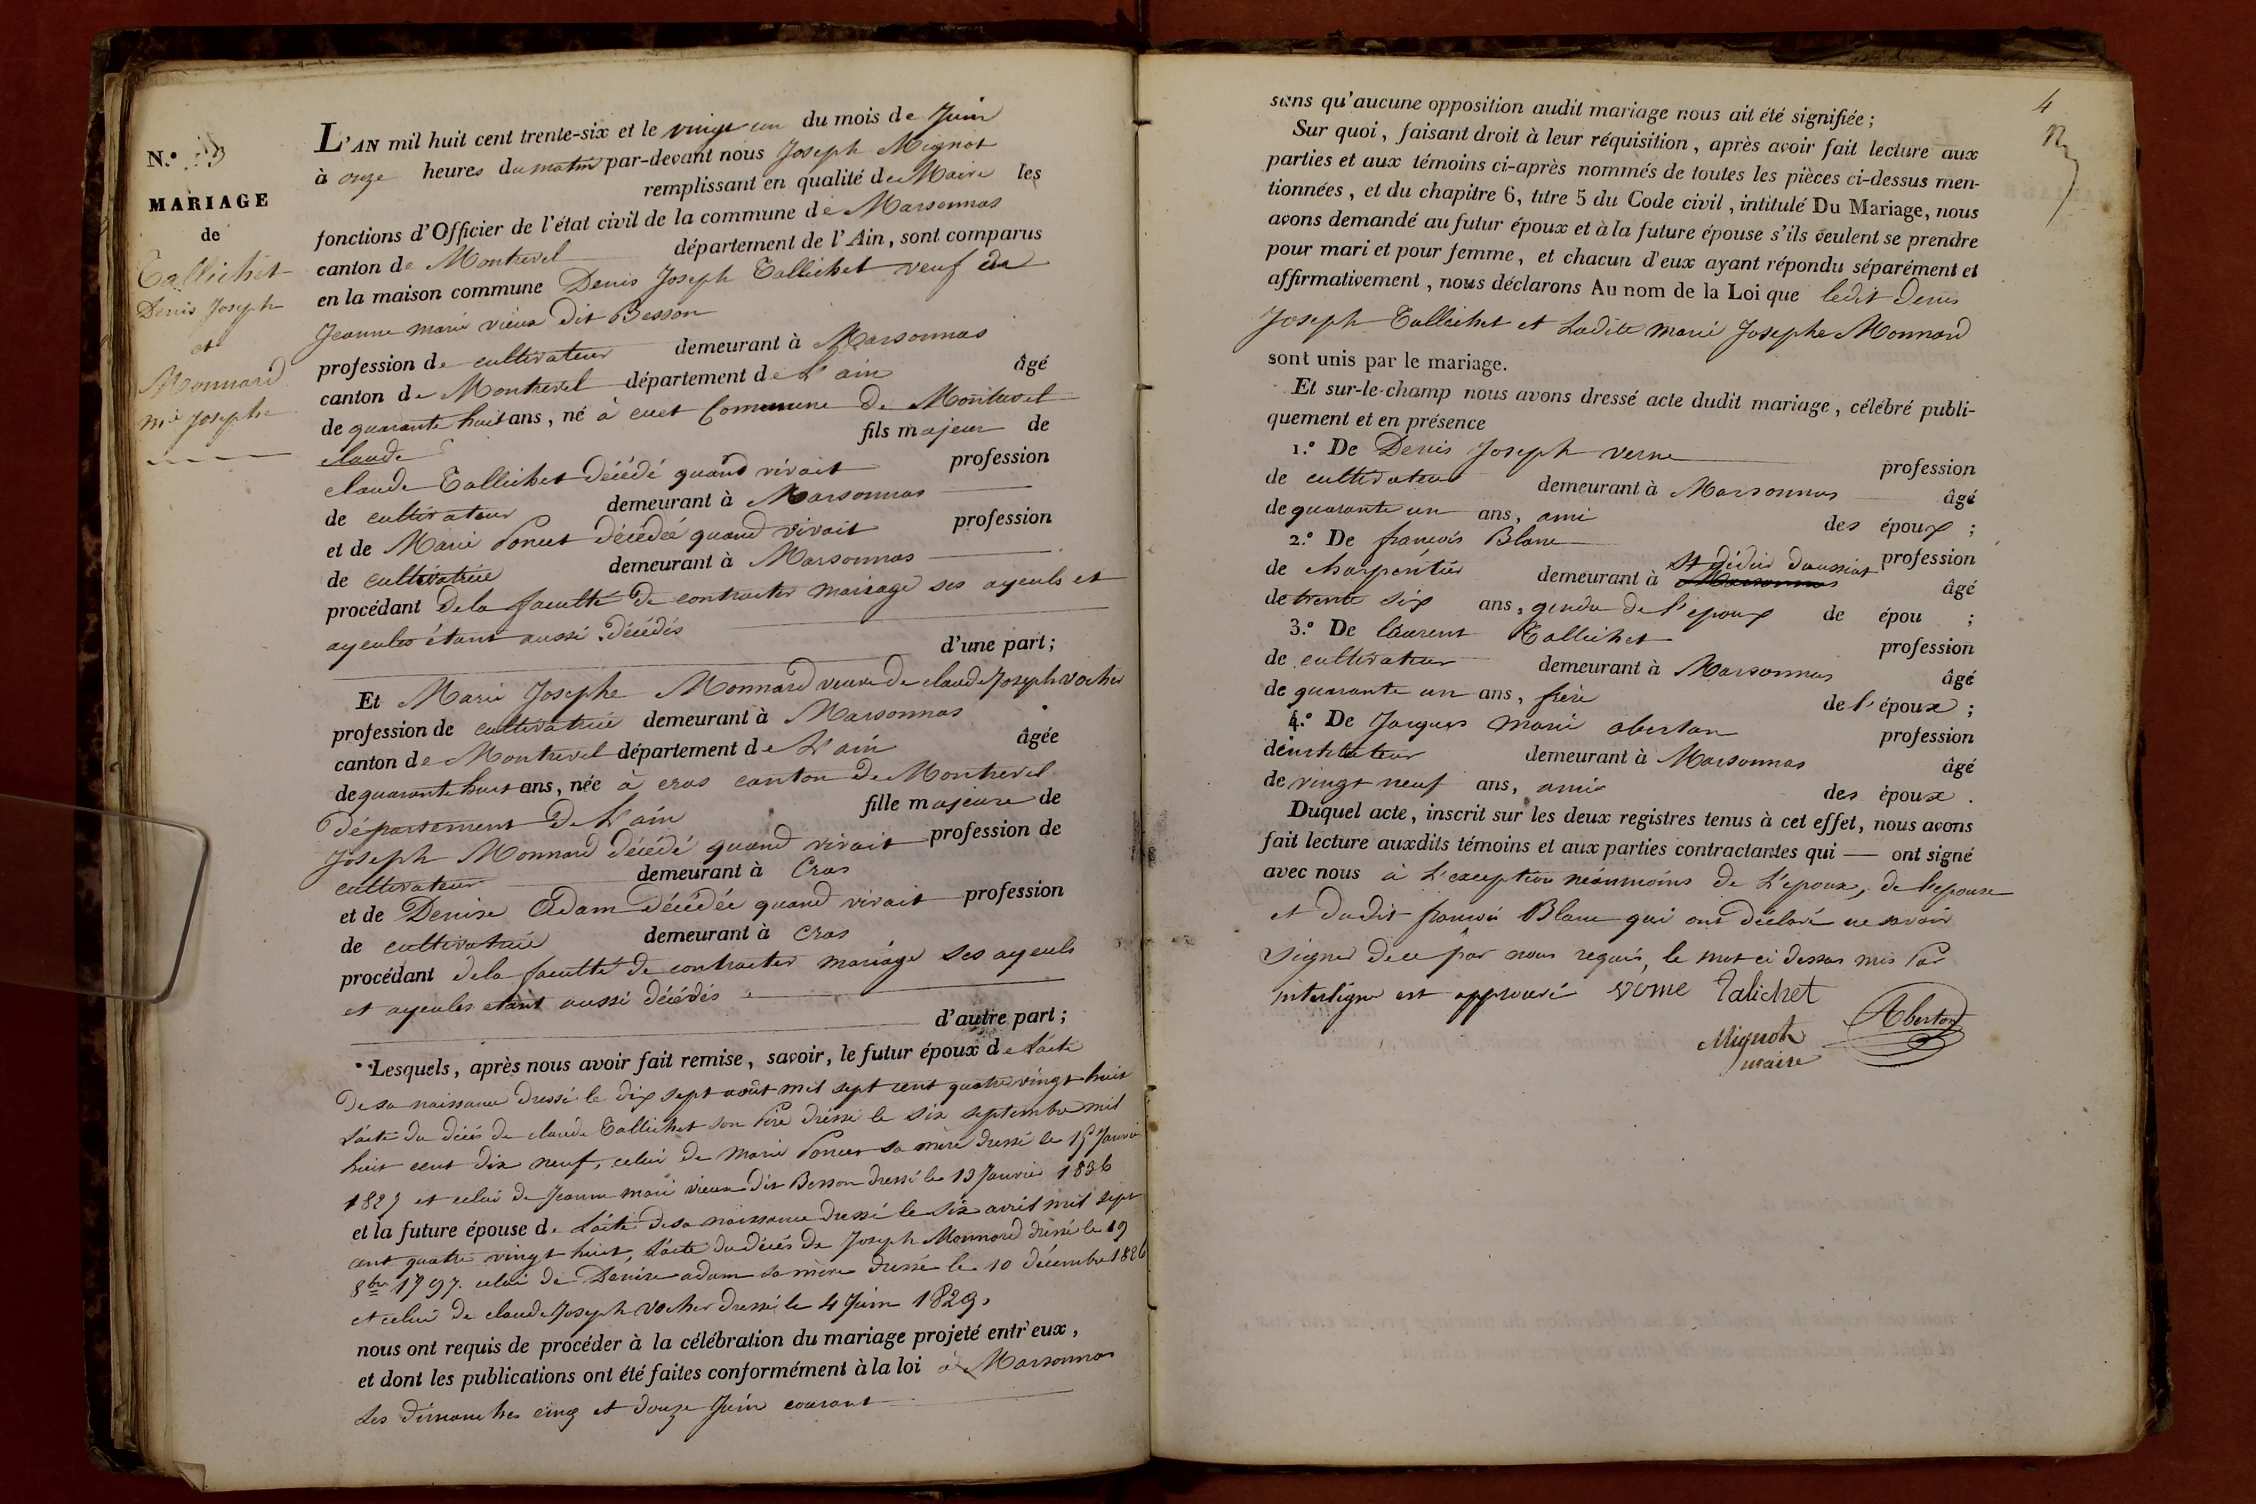 N.º
MARIAGE
de
Tallichet
Denis Joseph
et
Monnard
mie Josephe
L'AN mil huit cent trente-six et le vingt un du mois de Juin
à onze heures du matin par-devant nous Joseph Mignot
remplissant en qualité de Maire les
fonctions d'Officier de l'état civil de la commune de Marsonnas
canton de Montrevel département de l'Ain, sont comparus
en la maison commune Denis Joseph Tallichet veuf de
Jeanne marie vieux dit Besson
profession de cultivateur demeurant à Marsonnas
canton de Montrevel département de L'ain âgé
de quarante huit ans, né à cuet Commune De Montrevel
fils majeur de
claude
claude Tallichet décédé quand vivait profession
de cultivateur demeurant à Marsonnas
et de Marie Poncet décédée quand vivait profession
de cultivatrice demeurant à Marsonnas
procédant de la faculté de contracter mariage ses ayeuls et
ayeules étant aussi décédés
d'une part;
Et Marie Josephe Monnard veuve de claude Joseph Vocher
profession de cultivatrice demeurant à Marsonnas
canton de Montrevel département de L'ain âgée
de quarante huit ans, née à cras canton de Montrevel
Département De L'ain fille majeure de
Joseph Monnard décédé quand vivait profession de
cultivateur demeurant à Cras
et de Denise Adam décédée quand vivait profession
de cultivatrice demeurant à Cras
procédant de la faculté de contracter mariage ses ayeuls
et ayeules étant aussi décédés
d'autre part;
Lesquels, après nous avoir fait remise, savoir, le futur époux de L'acte
De sa naissance dressé le dix sept août mil sept cent quatre vingt huit
L'acte du décès de claude Tallichet son Père dressé le six septembre mil
huit cent dix neuf, celui de marie Poncet sa mère dressé le 15 Janvier
1827 et celui de Jeanne marie vieux dit Besson dressé le 13 Janvier 1836
et la future épouse de L'acte de sa naissance dressé le six avril mil sept
cent quatre vingt huit, L'acte du décès de Joseph Monnard dressé le 19
8bre 1797. celui de Denise adam sa mère dressé le 10 décembre 1826
et celui de claude Joseph Vocher dressé le 4 Juin 1829,
nous ont requis de procéder à la célébration du mariage projeté entr'eux,
et dont les publications ont été faites conformément à la loi à Marsonnas
Les Dimanches cinq et douze Juin courant
4
sans qu'aucune opposition audit mariage nous ait été signifiée;
Sur quoi, faisant droit à leur réquisition, après avoir fait lecture aux
parties et aux témoins ci-après nommés de toutes les pièces ci-dessus men-
tionnées, et du chapitre 6, titre 5 du Code civil, intitulé Du Mariage, nous
avons demandé au futur époux et à la future épouse s'ils veulent se prendre
pour mari et pour femme, et chacun d'eux ayant répondu séparément et
affirmativement, nous déclarons Au nom de la Loi que ledit Denis
Joseph Tallichet et Ladite marie Josephe Monnard
sont unis par le mariage.
Et sur-le-champ nous avons dressé acte dudit mariage, célébré publi-
quement et en présence
1.º De Denis Joseph verne profession
de cultivateur demeurant à Marsonnas âgé
de quarante un ans, ami des époux;
2.º De francois Blanc profession
de charpentier demeurant à St Didier Daussiat Marsonnas âgé
de trente six ans, gendre de l'epoux de épou ;
3.º De laurent Tallichet profession
de cultivateur demeurant à Marsonnas âgé
de quarante un ans, frère de l'époux;
4.º De Jacques marie aberton profession
d'instituteur demeurant à Marsonnas âgé
de vingt neuf ans, ami des époux.
Duquel acte, inscrit sur les deux registres tenus à cet effet, nous avons
fait lecture auxdits témoins et aux parties contractantes qui — ont signé
avec nous à L'exception néanmoins de L'epoux, de l'epouse
et dudit francois Blanc qui ont déclaré ne savoir
signer de ce par nous requis, le mot ci dessus mis Par
interligne est approuvé verne Talichet
Mignot Aberton
maire